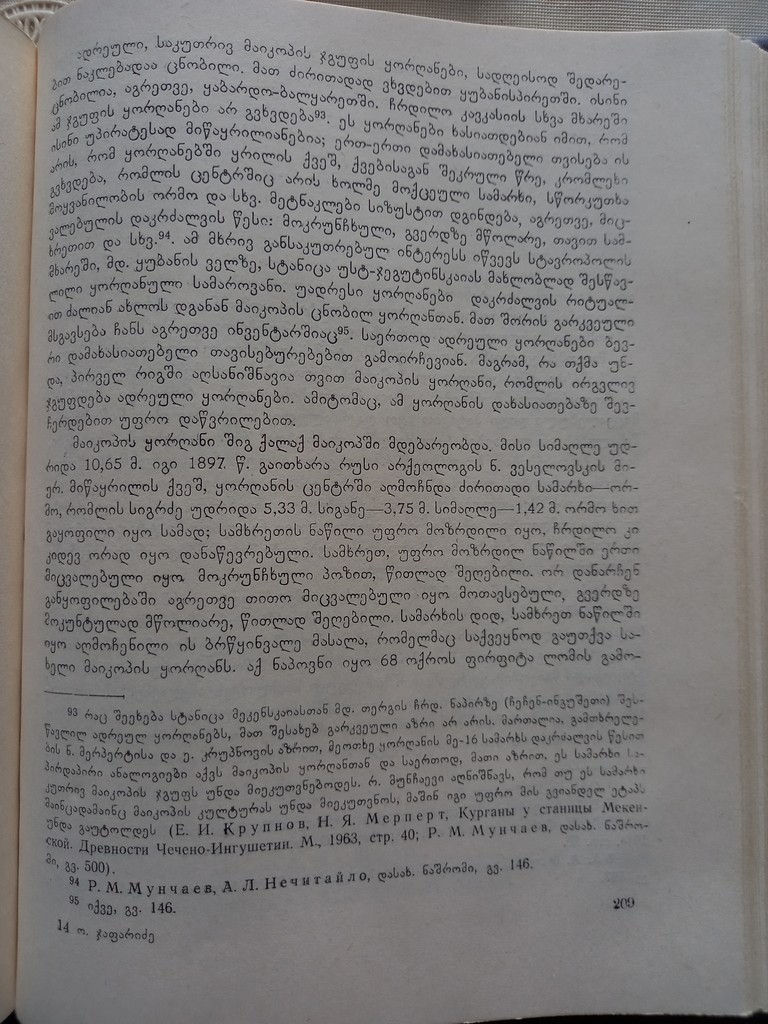 ადრეული, საკუთრივ მაიკოპის ჯგუფის ყორღანები, სადღეისოდ შედარე-
ბით ნაკლებადაა ცნობილი. მათ ძირითადად ვხვდებით ყუბანისპირეთში. ისინი
ცნობილია, აგრეთვე, ყაბარდო-ბალყარეთში. ჩრდილო კავკასიის სხვა მხარეში
ამ ჯგუფის ყორღანები არ გვხვდება⁹³. ეს ყორღანები ხასიათდებიან იმით, რომ
ისინი უპირატესად მიწაყრილიანებია; ერთ-ერთი დამახასიათებელი თვისება ის
არის, რომ ყორღანებში ყრილის ქვეშ, ქვებისაგან შეკრული წრე, კრომლეხი
გვხვდება, რომლის ცენტრშიც არის ხოლმე მოქცეული სამარხი, სწორკუთხა
მოყვანილობის ორმო და სხვ. მეტნაკლები სიზუსტით დგინდება, აგრეთვე, მიც-
ვალებულის დაკრძალვის წესი: მოკრუნჩხული, გვერდზე მწოლარე, თავით სამ-
ხრეთით და სხვ.⁹⁴. ამ მხრივ განსაკუთრებულ ინტერესს იწვევს სტავროპოლის
მხარეში, მდ. ყუბანის ველზე, სტანიცა უსტ-ჯეგუტინსკაიას მახლობლად შესწავ-
ლილი ყორღანული სამაროვანი. უადრესი ყორღანები დაკრძალვის რიტუალ-
ით ძალიან ახლოს დგანან მაიკოპის ცნობილ ყორღანთან. მათ შორის გარკვეული
მსგავსება ჩანს აგრეთვე ინვენტარშიაც⁹⁵. საერთოდ ადრეული ყორღანები ბევ-
რი დამახასიათებელი თავისებურებებით გამოირჩევიან. მაგრამ, რა თქმა უნ-
და, პირველ რიგში აღსანიშნავია თვით მაიკოპის ყორღანი, რომლის ირგვლივ
ჯგუფდება ადრეული ყორღანები. ამიტომაც, ამ ყორღანის დახასიათებაზე შევ-
ჩერდებით უფრო დაწვრილებით.
მაიკოპის ყორღანი შიგ ქალაქ მაიკოპში მდებარეობდა. მისი სიმაღლე უდ-
რიდა 10,65 მ. იგი 1897 წ. გაითხარა რუსი არქეოლოგის ნ. ვესელოვსკის მი-
ერ. მიწაყრილის ქვეშ, ყორღანის ცენტრში აღმოჩნდა ძირითადი სამარხი—ორ-
მო, რომლის სიგრძე უდრიდა 5,33 მ. სიგანე—3,75 მ. სიმაღლე—1,42 მ. ორმო ხით
გაყოფილი იყო სამად; სამხრეთის ნაწილი უფრო მოზრდილი იყო, ჩრდილო კი
კიდევ ორად იყო დანაწევრებული. სამხრეთ, უფრო მოზრდილ ნაწილში ერთი
მიცვალებული იყო მოკრუნჩხული პოზით, წითლად შეღებილი. ორ დანარჩენ
განყოფილებაში აგრეთვე თითო მიცვალებული იყო მოთავსებული, გვერდზე
მოკუნტულად მწოლიარე, წითლად შეღებილი. სამარხის დიდ, სამხრეთ ნაწილში
იყო აღმოჩენილი ის ბრწყინვალე მასალა, რომელმაც საქვეყნოდ გაუთქვა სა-
ხელი მაიკოპის ყორღანს. აქ ნაპოვნი იყო 68 ოქროს ფირფიტა ლომის გამო-
⁹³ რაც შეეხება სტანიცა მეკენსკაიასთან მდ. თერგის ჩრდ. ნაპირზე (ჩეჩენ-ინგუშეთი) შეს-
წავლილ ადრეულ ყორღანებს, მათ შესახებ გარკვეული აზრი არ არის. მართალია, გამთხრელე-
ბის ნ. მერპერტისა და ე. კრუპნოვის აზრით, მეოთხე ყორღანის მე-16 სამარხს დაკრძალვის წესით
პირდაპირი ანალოგიები აქვს მაიკოპის ყორღანთან და საერთოდ, მათი აზრით, ეს სამარხი სა-
კუთრივ მაიკოპის ჯგუფს უნდა მიეკუთვნებოდეს. რ. მუნჩაევი აღნიშნავს, რომ თუ ეს სამარხი
მაინცადამაინც მაიკოპის კულტურას უნდა მიეკუთვნოს, მაშინ იგი უფრო მის გვიანდელ ეტაპს
უნდა გაუტოლდეს (Е. И. Крупнов, Н. Я. Мерперт, Курганы у станицы Мекен-
ской. Древности Чечено-Ингушетии. М., 1963, стр. 40; Р. М. Мунчаев, დასახ. ნაშრო-
მი, გვ. 500).
⁹⁴ Р. М. Мунчаев, А. Л. Нечитайло, დასახ. ნაშრომი, გვ. 146.
⁹⁵ იქვე, გვ. 146.
14 ო. ჯაფარიძე
209